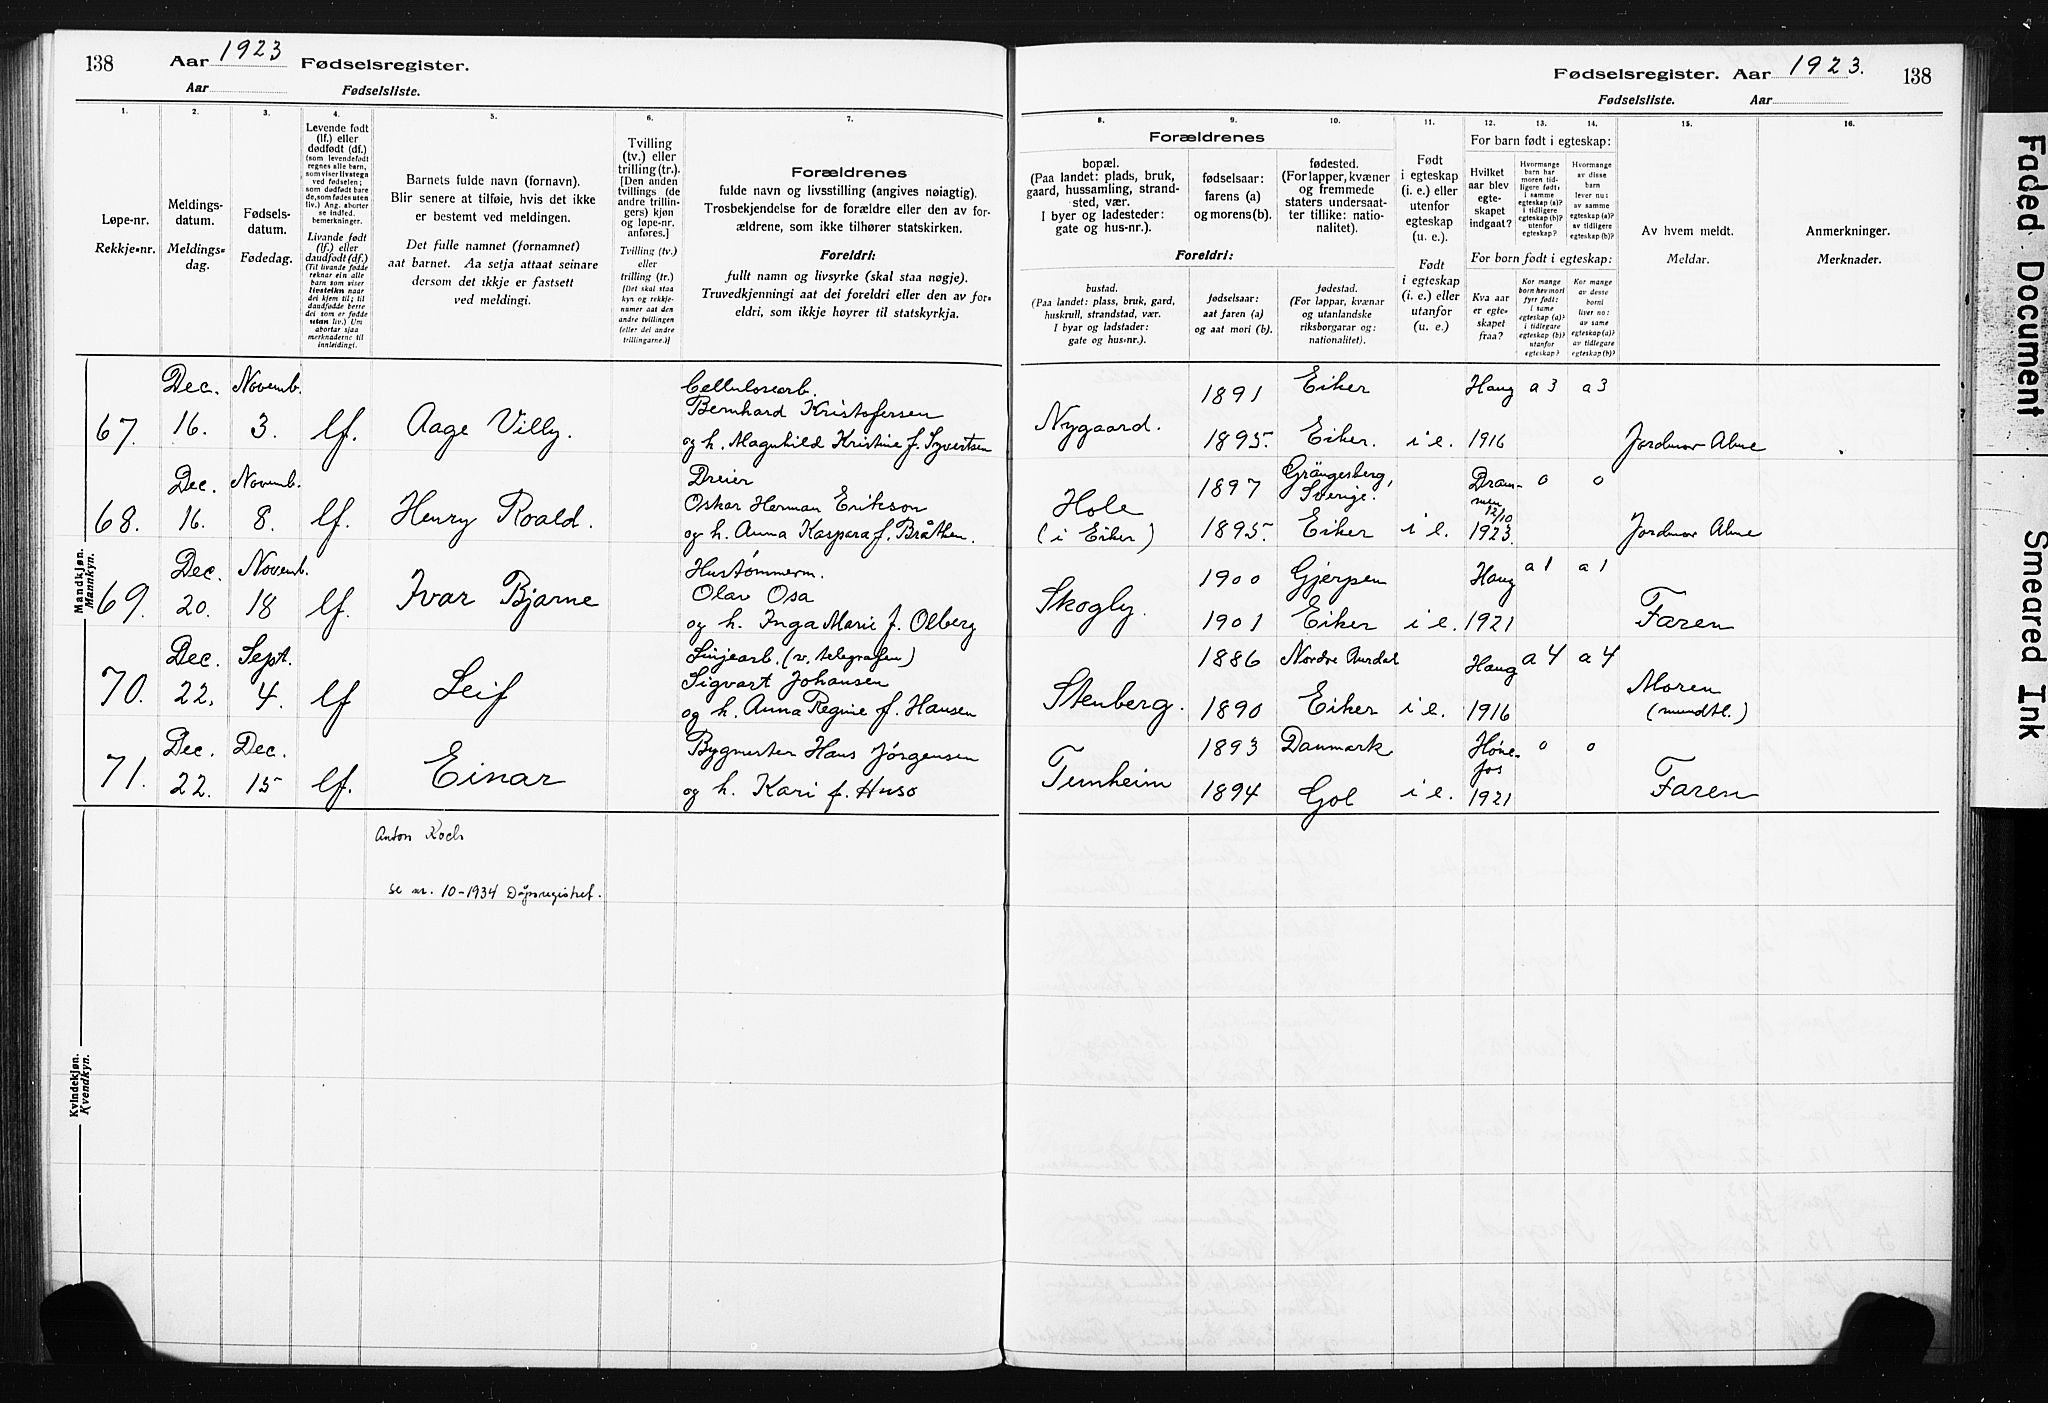 138
Aar 1923 Fødselsregister.
Aar Fødselsliste.
1. 2. 3. 4. 5. 6. 7.
Løpe-nr.
Rekkje-nr.
Meldings-
datum.
Meldings-
dag.
Fødsels-
datum.
Fødedag.
Levende født
(lf.) eller
dødfødt (df.)
(som levendefødt
regnes alle barn,
som viser livstegn
ved fødselen;
som dødfødt bare
de, som fødes uten
liv.) Ang. aborter
se indled.
bemerkninger.
Livande født
(lf.) eller
daudfødt (df.)
(Til livande fødde
reknar ein alle
barn som viser
livsteikn naar
dei kjem til; til
daudfødde berre
dei som er fødde
utan liv.) Um
abortar sjaa
merknaderne til
innleidingi.
Barnets fulde navn (fornavn).
Blir senere at tilføie, hvis det ikke
er bestemt ved meldingen.
Det fulle namnet (fornamnet)
aat barnet. Aa setja attaat seinare
dersom det ikkje er fastsett
ved meldingi.
Tvilling
(tv.) eller
trilling (tr.).
[Den anden
tvillings (de
andre trillin-
gers) kjøn
og løpe-nr.
anføres.]
Tvilling (tv.)
eller
trilling (tr.)
[Det skal staa
kyn og rekkje-
numer aat den
andre tvillingen
(eller dei andre
trillingarne.)]
Forældrenes
fulde navn og livsstilling (angives nøiagtig).
Trosbekjendelse for de forældre eller den av for-
ældrene, som ikke tilhører statskirken.
Foreldri:
fullt namn og livsyrke (skal staa nøgje).
Truvedkjenningi aat dei foreldri eller den av for-
eldri, som ikkje høyrer til statskyrkja.
Mandkjøn.
Mannkyn.
67.
Dec.
16.
Novemb.
3.
lf.
Aage Villy.
Cellulosearb.
Bernhard Kristofersen
og h. Magnhild Kristine f. Syvertsen
68.
Dec.
16.
Novemb.
8.
lf.
Henry Roald.
Dreier
Oskar Herman Erikson
og h. Anna Kaspara f. Bråthen.
69.
Dec.
20.
Novemb.
18
lf.
Ivar Bjarne
Hustømmerm.
Olav Osa
og h. Inga Marie f. Olberg
70.
Dec.
22.
Sept.
4.
lf
Leif
Linjearb. (v. telegrafen)
Sigvart Johansen
og h. Anna Regine f. Hansen
71.
Dec.
22.
Dec.
15
lf.
Einar
Bygmester Hans Jörgensen
og h. Kari f. Huso
Anton Koch
se nr. 10-1934 Dåpsregistret.
Kvindekjøn.
Kvendkyn.
Fødselsregister. Aar 1923. 138
Fødselsliste. Aar
8. 9. 10. 11. 12. 13. 14. 15. 16.
Forældrenes
bopæl.
(Paa landet: plads, bruk,
gaard, hussamling, strand-
sted, vær.
I byer og ladesteder:
gate og hus-nr.).
fødselsaar:
farens (a)
og morens (b).
fødested.
(For lapper, kvæner
og fremmede
staters undersaat-
ter tillike: natio-
nalitet).
Foreldri:
bustad.
(Paa landet: plass, bruk, gard,
huskrull, strandstad, vær.
I byar og ladstader:
gate og hus-nr.).
fødselsaar:
aat faren (a)
og aat mori (b).
fødestad.
(For lappar, kvænar
og utanlandske
riksborgarar og:
nationalitet).
Født
i egteskap
(i. e.) eller
utenfor
egteskap
(u. e.).
Født
i egteskap
(i. e.) eller
utanfor
(u. e.)
For barn født i egteskap:
Hvilket
aar blev
egte-
skapet
indgaat?
Hvormange
barn har
moren tid-
ligere født:
i samme
egteskap (a)?
i tidligere
egteskap (b)?
utenfor
egteskap?
Hvormange
av disse
barn
lever nu:
av samme
egteskap (a)?
av tidligere
egteskap (b)?
For born født i egteskap:
Kva aar
er egte-
skapet
fraa?
Kor mange
born hev mori
fyrr født:
i same
egteskap (a)?
i tidlegare
egteskap (b)?
utanfor
egteskap?
Kor mange
av desse
borni
liver no:
av same
egteskap (a)?
av tidlegare
egteskap (b)?
Av hvem meldt.
Meldar.
Anmerkninger.
Merknader.
Nygaard.
1891
1895.
Eiker
Eiker.
i e.
Haug
1916
a 3
a 3
Jordmor Alme
Hole
(i Eiker)
1897
1895.
Grängesberg,
Sverige.
Eiker
i e.
Dram-
men
12/10
1923.
0
0
Jordmor Alme
Skogly.
1900
1901
Gjerpen
Eiker
i e.
Haug
1921
a 1
a 1
Faren
Stenberg.
1886
1890
Nordre Aurdal
Eiker
i e.
Haug
1916
a 4
a 4
Moren
(mundtl.)
1893
1894
Danmark
Gol
i e.
Høne-
fos
1921
0
0
Faren
Faded Document
Smeared Ink